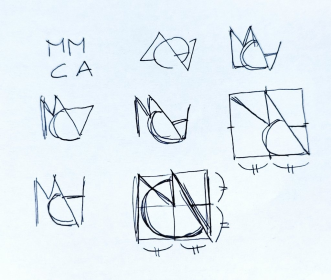 MM
CA